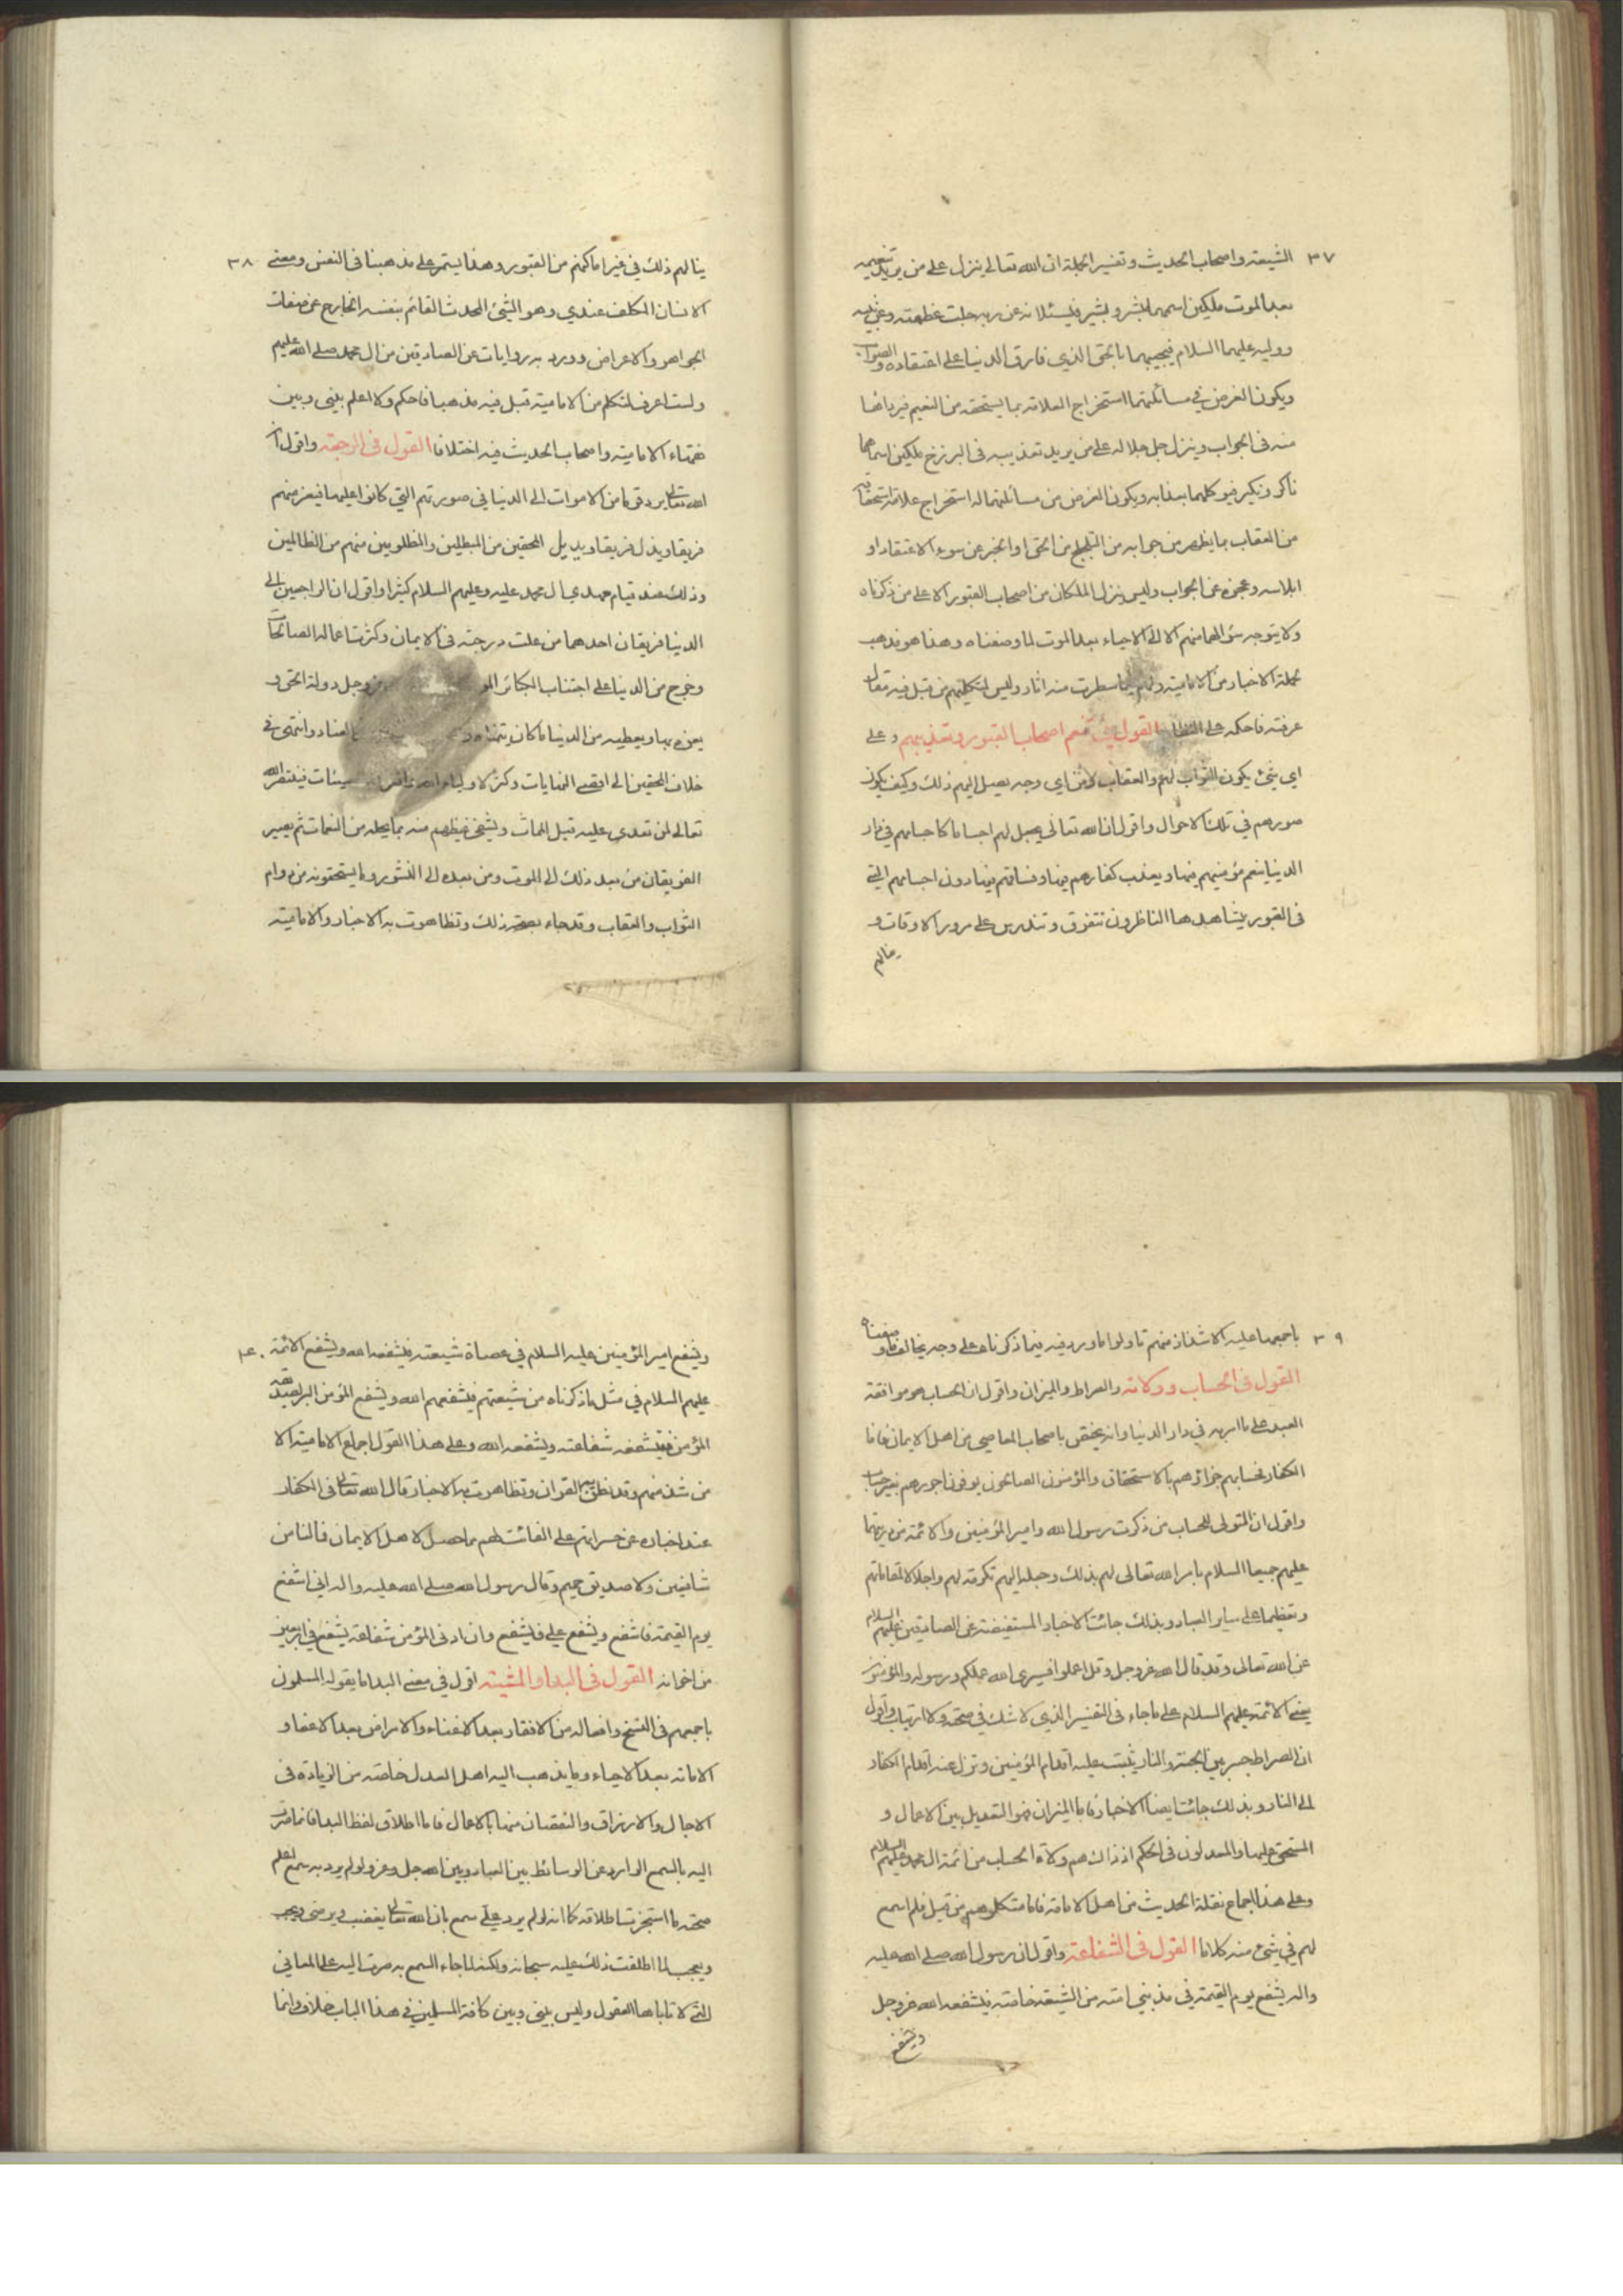 ٣٧ الشيعة واصحاب الحديث وتفسير الجملة ان الله تعالى ينزل على من يريد تنعيمه
بعد الموت ملكين اسمهما مبشر وبشير فيسئلانه عن ربه جلت عظمته وعن نبيه
ووليه عليهما السلام فيجيبهما بالحق الذي فارق الدنيا على اعتقاده والصواب
ويكون الغرض في مسائلتهما استخراج العلامة بما يستحقه من النعيم فيجدانها
منه في الجواب وينزل جل جلاله على من يريد تعذيبه في البرزخ ملكين اسماهما
ناكر ونكير فيوكلهما بعذابه ويكون الغرض من مسائلتهما له استخراج علامة استحقاقه
من العقاب بما يظهر من جوابه من التلجلج عن الحق او الخبر عن سوء الاعتقاد او
ابلاسه وعجزه عن الجواب وليس ينزل الملكان من اصحاب القبور الا على من ذكرناه
ولا يتوجه سؤالهما منهم الا الى الاحياء بعد الموت لما وصفناه وهذا هو مذهب
حملة الاخبار من الامامية ولهم فيما سطرت منه اثار وليس لمتكلميهم من قبل فيه مقال
عرفته فاحكيه على النظام القول في تنعم اصحاب القبور وتعذيبهم وعلى
اي شئ يكون الثواب لهم والعقاب ومن اي وجه يصل اليهم ذلك وكيف يكون
صورهم في تلك الاحوال واقول ان الله تعالى يجعل لهم اجساما كاجسامهم في دار
الدنيا ينعم مؤمنيهم فيها ويعذب كفارهم فيها وفساقهم فيها دون اجسامهم التي
في القبور يشاهدها الناظرون تتفرق وتندرس على مرور الاوقات و
ينالهم
ينالهم ذلك في غير اماكنهم من القبور وهذا يستمر على مذهبنا في النفس ومعنى ٣٨
الانسان المكلف عندي وهو الشئ المحدث القائم بنفسه الخارج عن صفات
الجواهر والاعراض وورد به روايات عن الصادقين من ال محمد صلى الله عليهم
ولست اعرف لمتكلم من الامامية قبل فيه مذهبا فاحكم ولا اعلم بيني وبين
فقهاء الامامية واصحاب الحديث فيه اختلافا القول في الرجعة واقول ان
الله تعالى يرد قوما من الاموات الى الدنيا في صورتهم التي كانوا عليها فيعز منهم
فريقا ويذل فريقا ويديل المحقين من المبطلين والمظلومين منهم من الظالمين
وذلك عند قيام مهدي ال محمد عليه وعليهم السلام كثيرا واقول ان الراجعين الى
الدنيا فريقان احدهما من علت درجته في الايمان وكثرت اعماله الصالحات
وخرج من الدنيا على اجتناب الكبائر عز وجل دولة الحق و
يعزه بها ويعطيه من الدنيا ما كان يتمناه العناد وانتهى في
خلاف المحقين الى اقصى الغايات وكثر السيئات فينتصر الله
تعالى لمن تعدى عليه قبل الممات ويشفي غيظهم منه بما يحله من النقمات ثم يصير
الفريقان من بعد ذلك الى الموت ومن بعده الى النشور وما يستحقونه من دوام
الثواب والعقاب وقد جاء بصحة ذلك وتظاهرت به الاخبار والامامية
٣٩ باجمعها عليه الا شذاذ منهم تاولوا ما ورد فيه فيما ذكرناه على وجه يخالف ما وصفناه
القول في الحساب وولاته والصراط والميزان واقول ان الحساب هو موافقة
العبد على ما امر به في دار الدنيا وانه يختص باصحاب المعاصي من اهل الايمان فاما
الكفار فحسابهم جزاؤهم بالاستحقاق والمؤمنون الصالحون يوفون اجورهم بغير حساب
واقول ان المتولي للحساب من ذكرت رسول الله وامير المؤمنين والائمة من ذريتهما
عليهم جميعا السلام بامر الله تعالى لهم بذلك وجعله اليهم تكرمة لهم واجلالا لمقاماتهم
وتعظيما على سائر العباد وبذلك جائت الاخبار المستفيضة عن الصادقين عليهم السلام
عن الله تعالى وقد قال الله عز وجل وقل اعملوا فسيرى الله عملكم ورسوله والمؤمنون
يعني الائمة عليهم السلام على ما جاء في التفسير الذي لا شك في صحته ولا ارتياب واقول
ان الصراط جسر بين الجنة والنار يثبت عليه اقدام المؤمنين وتزل عنه اقدام الكفار
الى النار وبذلك جائت ايضا الاخبار فاما الميزان فهو التعديل بين الاعمال و
المستحق عليها والمعدلون في الحكم اذ ذاك هم ولاة الحساب من ائمة ال محمد عليهم السلام
وعلى هذا اجماع نقلة الحديث من اهل الامامة فاما متكلموهم من قبل فلم اسمع
لهم في شئ منه كلاما القول في الشفاعة واقول ان رسول الله صلى الله عليه
واله يشفع يوم القيمة في مذنبي امته من الشيعة خاصة فيشفعه الله عز وجل
ويشفع
ويشفع امير المؤمنين عليه السلام في عصاة شيعته فيشفعه الله ويشفع الائمة ٤٠
عليهم السلام في مثل ما ذكرناه من شيعتهم فيشفعهم الله ويشفع المؤمن البر لصديقه
المؤمن فينفعه شفاعته ويشفعه الله وعلى هذا القول اجماع الامامية الا
من شذ منهم وقد نطق به القران وتظاهرت به الاخبار قال الله تعالى في الكفار
عند اخباره عن حسراتهم على الفائت لهم مما حصل لاهل الايمان فما لنا من
شافعين ولا صديق حميم وقال رسول الله صلى الله عليه واله اني اشفع
يوم القيمة فاشفع ويشفع علي فيشفع وان ادنى المؤمن شفاعة يشفع في اربعين
من اخوانه القول في البدا والمشية اقول في معنى البدا ما يقوله المسلمون
باجمعهم في النسخ وامثاله من الافقار بعد الاغناء والامراض بعد الاعفاء و
الاماتة بعد الاحياء وما يذهب اليه اهل العدل خاصة من الزيادة في
الاجال والارزاق والنقصان منها بالاعمال فاما اطلاق لفظ البدا فانما صرت
اليه بالسمع الوارد عن الوسائط بين العباد وبين الله جل وعز ولو لم يرد به سمع اعلم
صحته ما استجزت اطلاقه كما انه لو لم يرد علي سمع بان الله تعالى يغضب ويرضى ويحب
ويعجب لما اطلقت ذلك عليه سبحانه ولكنه لما جاء السمع به صرت اليه على المعاني
التي لا تاباها العقول وليس بيني وبين كافة المسلمين في هذا الباب خلاف وانما